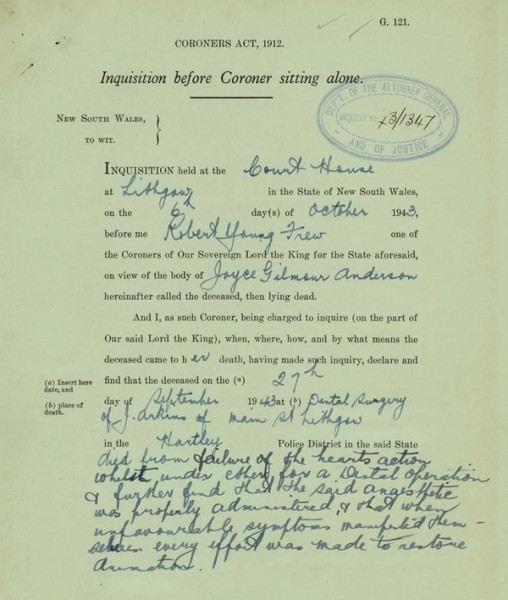 G. 121.
CORONERS ACT, 1912.
Inquisition before Coroner sitting alone.
DEPT. OF THE ATTORNEY GENERAL
INQUEST No. 43/1347
AND OF JUSTICE
NEW SOUTH WALES,
TO WIT.
INQUISITION held at the Court House
at Lithgow in the State of New South Wales,
on the 6th day(s) of October 1943,
before me Robert Young Frew one of
the Coroners of Our Sovereign Lord the King for the State aforesaid,
on view of the body of Joyce Gilmour Anderson
hereinafter called the deceased, then lying dead.
And I, as such Coroner, being charged to inquire (on the part of
Our said Lord the King), when, where, how, and by what means the
deceased came to her death, having made such inquiry, declare and
(a) Insert here date, and
find that the deceased on the (a) 27th
(b) place of death.
day of September 1943 at (b) Dental Surgery
of J. of main St Lithgow
in the Hartley Police District in the said State
died from failure of the hearts action
whilst under ether for a Dental operation
& further find that the said anaesthetic
was properly administered, & that when
unfavourable symptoms manifested them-
selves every effort was made to restore
animation.